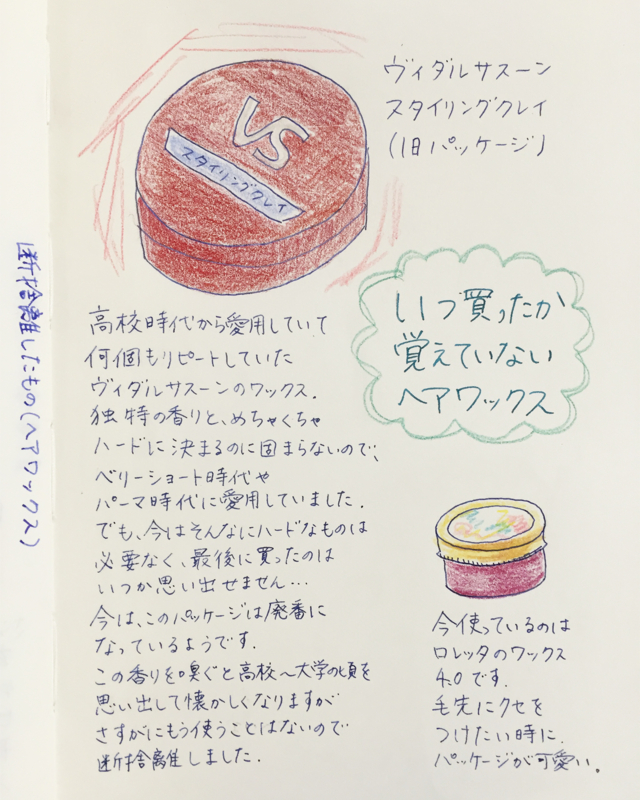 断捨離したもの(ヘアワックス)
VS
スタイリングクレイ
ヴィダルサスーン
スタイリングクレイ
(旧パッケージ)
いつ買ったか
覚えていない
ヘアワックス
高校時代から愛用していて
何個もリピートしていた
ヴィダルサスーンのワックス.
独特の香りと、めちゃくちゃ
ハードに決まるのに固まらないので、
ベリーショート時代や
パーマ時代に愛用していました.
でも、今はそんなにハードなものは
必要なく、最後に買ったのは
いつか思い出せません…
今は、このパッケージは廃番に
なっているようです.
この香りを嗅ぐと高校〜大学の頃を
思い出して懐かしくなりますが
さすがにもう使うことはないので
断捨離しました.
今使っているのは
ロレッタのワックス
4.0です.
毛先にクセを
つけたい時に.
パッケージが可愛い。